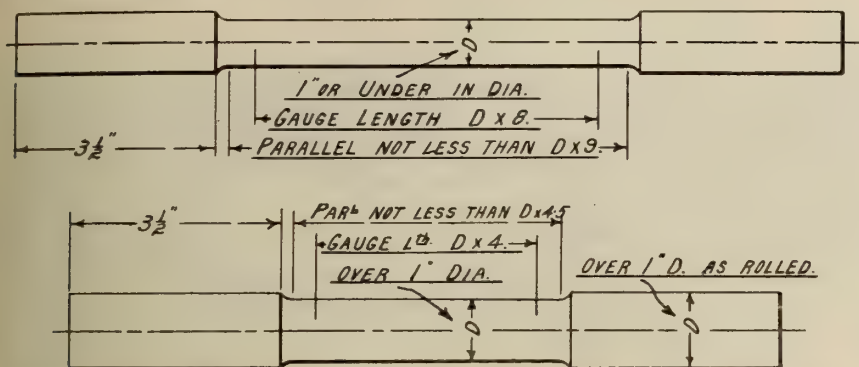 D
1" OR UNDER IN DIA.
GAUGE LENGTH D x 8.
3½"
PARALLEL NOT LESS THAN D x 9.
3½"
PARL NOT LESS THAN D x 4.5
GAUGE LTH. D x 4.
OVER 1" DIA.
OVER 1" D. AS ROLLED.
D
D